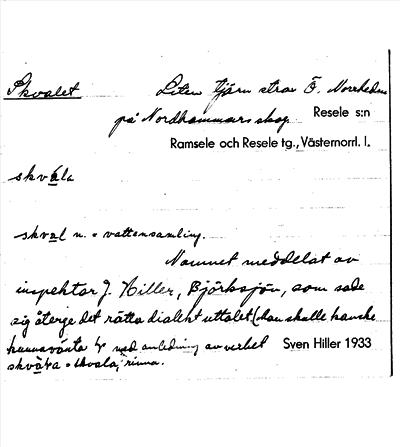 Skvalet
Liten tjärn strax Ö. Norrheden
på Nordhammars skog. Resele s:n
Ramsele och Resele tg., Västernorrl. l.
skvala
skval n. = vattensamling.
Namnet meddelat av
inspektor J. Hiller, Björksjön, som sade
sig återge det rätta dialekt uttalet (Man skulle kanske
kunna vänta med anledning av verbet Sven Hiller 1933
= skvala, rinna.